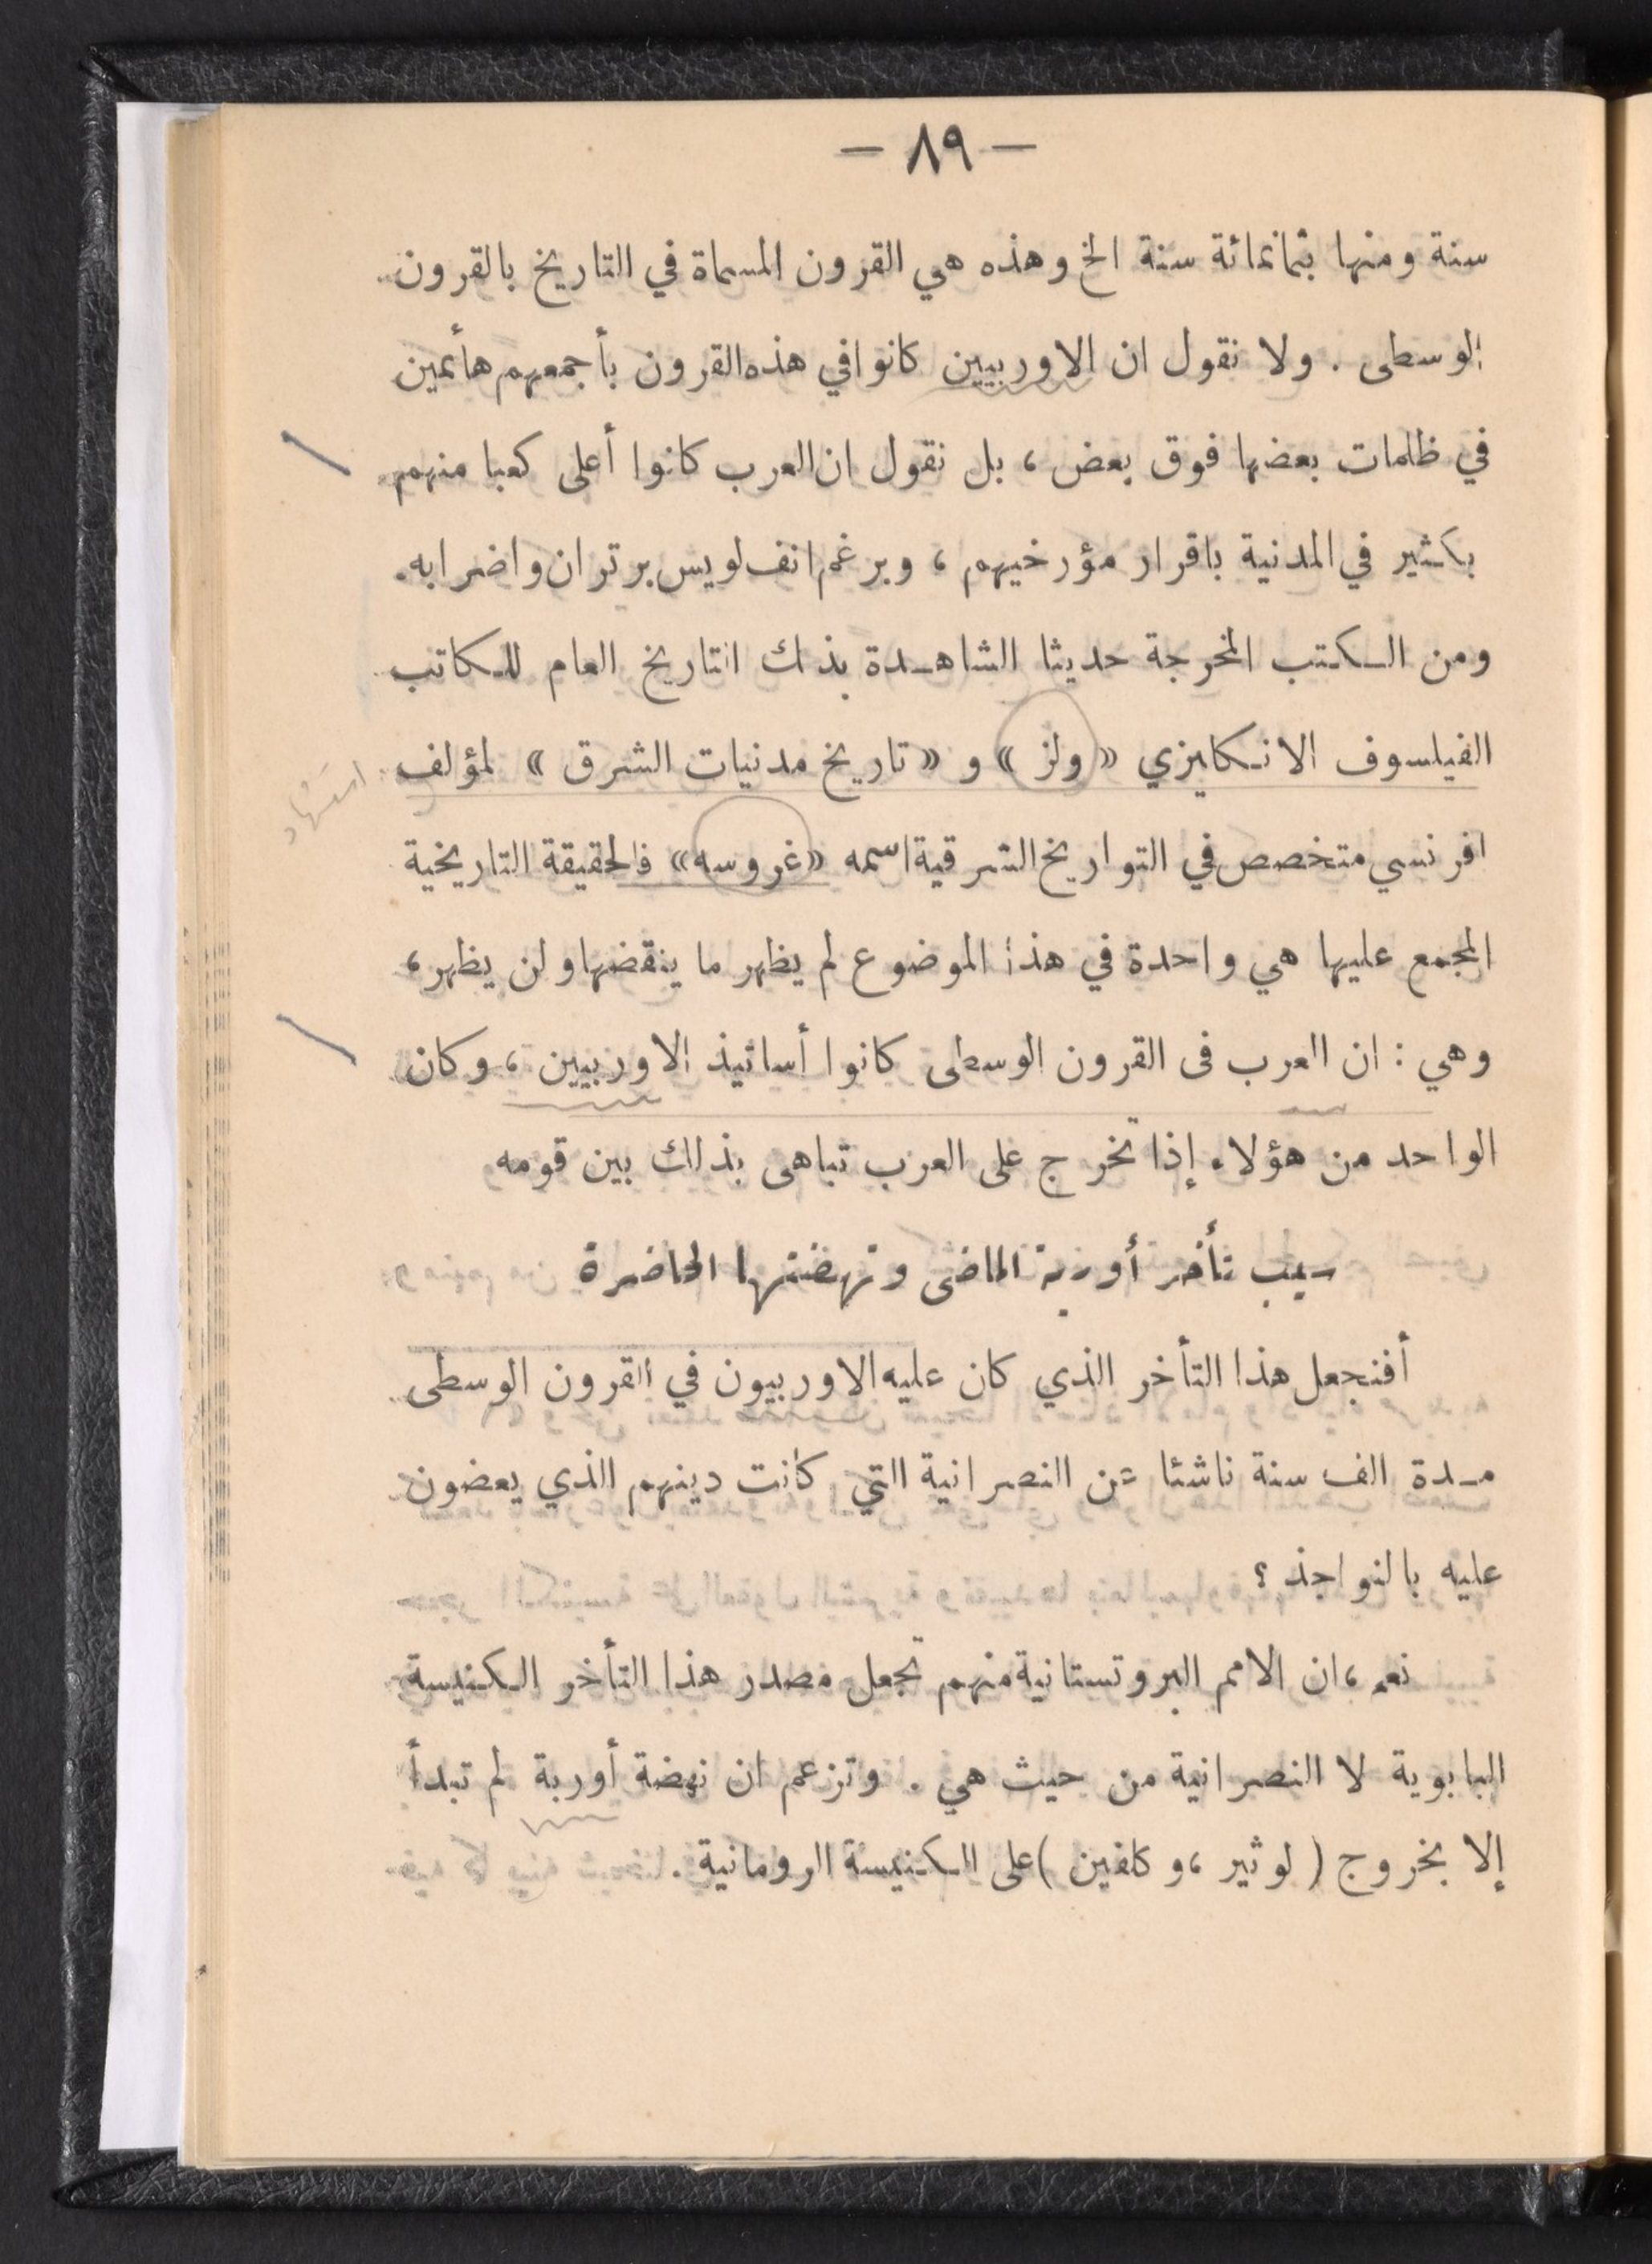 — ٨٩ —
سنة ومنها بثمانمائة سنة الخ وهذه هي القرون المسماة في التاريخ بالقرون
الوسطى . ولا نقول ان الاوربيين كانوا في هذه القرون بأجمعهم هائمين
في ظلمات بعضها فوق بعض ، بل نقول ان العرب كانوا أعلى كعبا منهم
بكثير في المدنية باقرار مؤرخيهم ، وبرغم انف لويس برتران واضرابه.
ومن الكتب المخرجة حديثا الشاهدة بذلك التاريخ العام للكاتب
الفيلسوف الانكليزي « ولز » و « تاريخ مدنيات الشرق » لمؤلف
استشهاد
افرنسي متخصص في التواريخ الشرقية اسمه « غروسه » فالحقيقة التاريخية
المجمع عليها هي واحدة في هذا الموضوع لم يظهر ما ينقضها ولن يظهر ،
وهي : ان العرب فى القرون الوسطى كانوا أساتيذ الاوربيين ، وكان
الواحد من هؤلاء إذا تخرج على العرب تباهى بذلك بين قومه
سبب تأخر أوربة الماضى ونهضتها الحاضرة
أفنجعل هذا التأخر الذي كان عليه الاوربيون في القرون الوسطى
مدة الف سنة ناشئا عن النصرانية التي كانت دينهم الذي يعضون
عليه بالنواجذ ؟
نعم ، ان الامم البروتستانية منهم تجعل مصدر هذا التأخر الكنيسة
البابوية لا النصرانية من حيث هي . وتزعم ان نهضة أوربة لم تبدأ
إلا بخروج ( لوثير ، و كلفين ) على الكنيسة الرومانية .